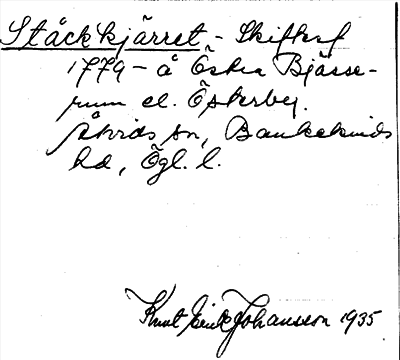 Ståckkjärret - Skiftesf
1779 - å Östra Bjässe-
rum el. Österby.
Åtvids sn, Bankekinds
hd, Ögl. l.
Knut Erik Johansson 1935